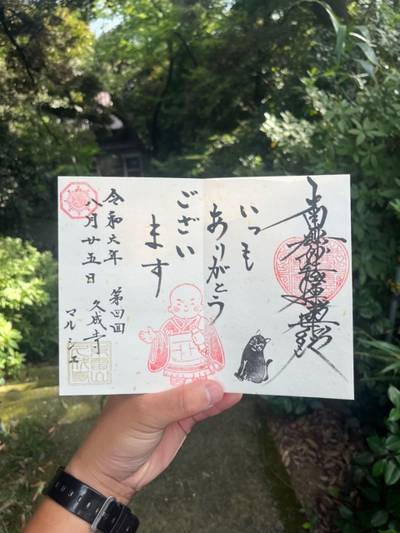 南無妙法蓮華経
いつも
ありがとう
ござい
ます
令和六年
八月廿五日
第四回
久成寺
マルシェ